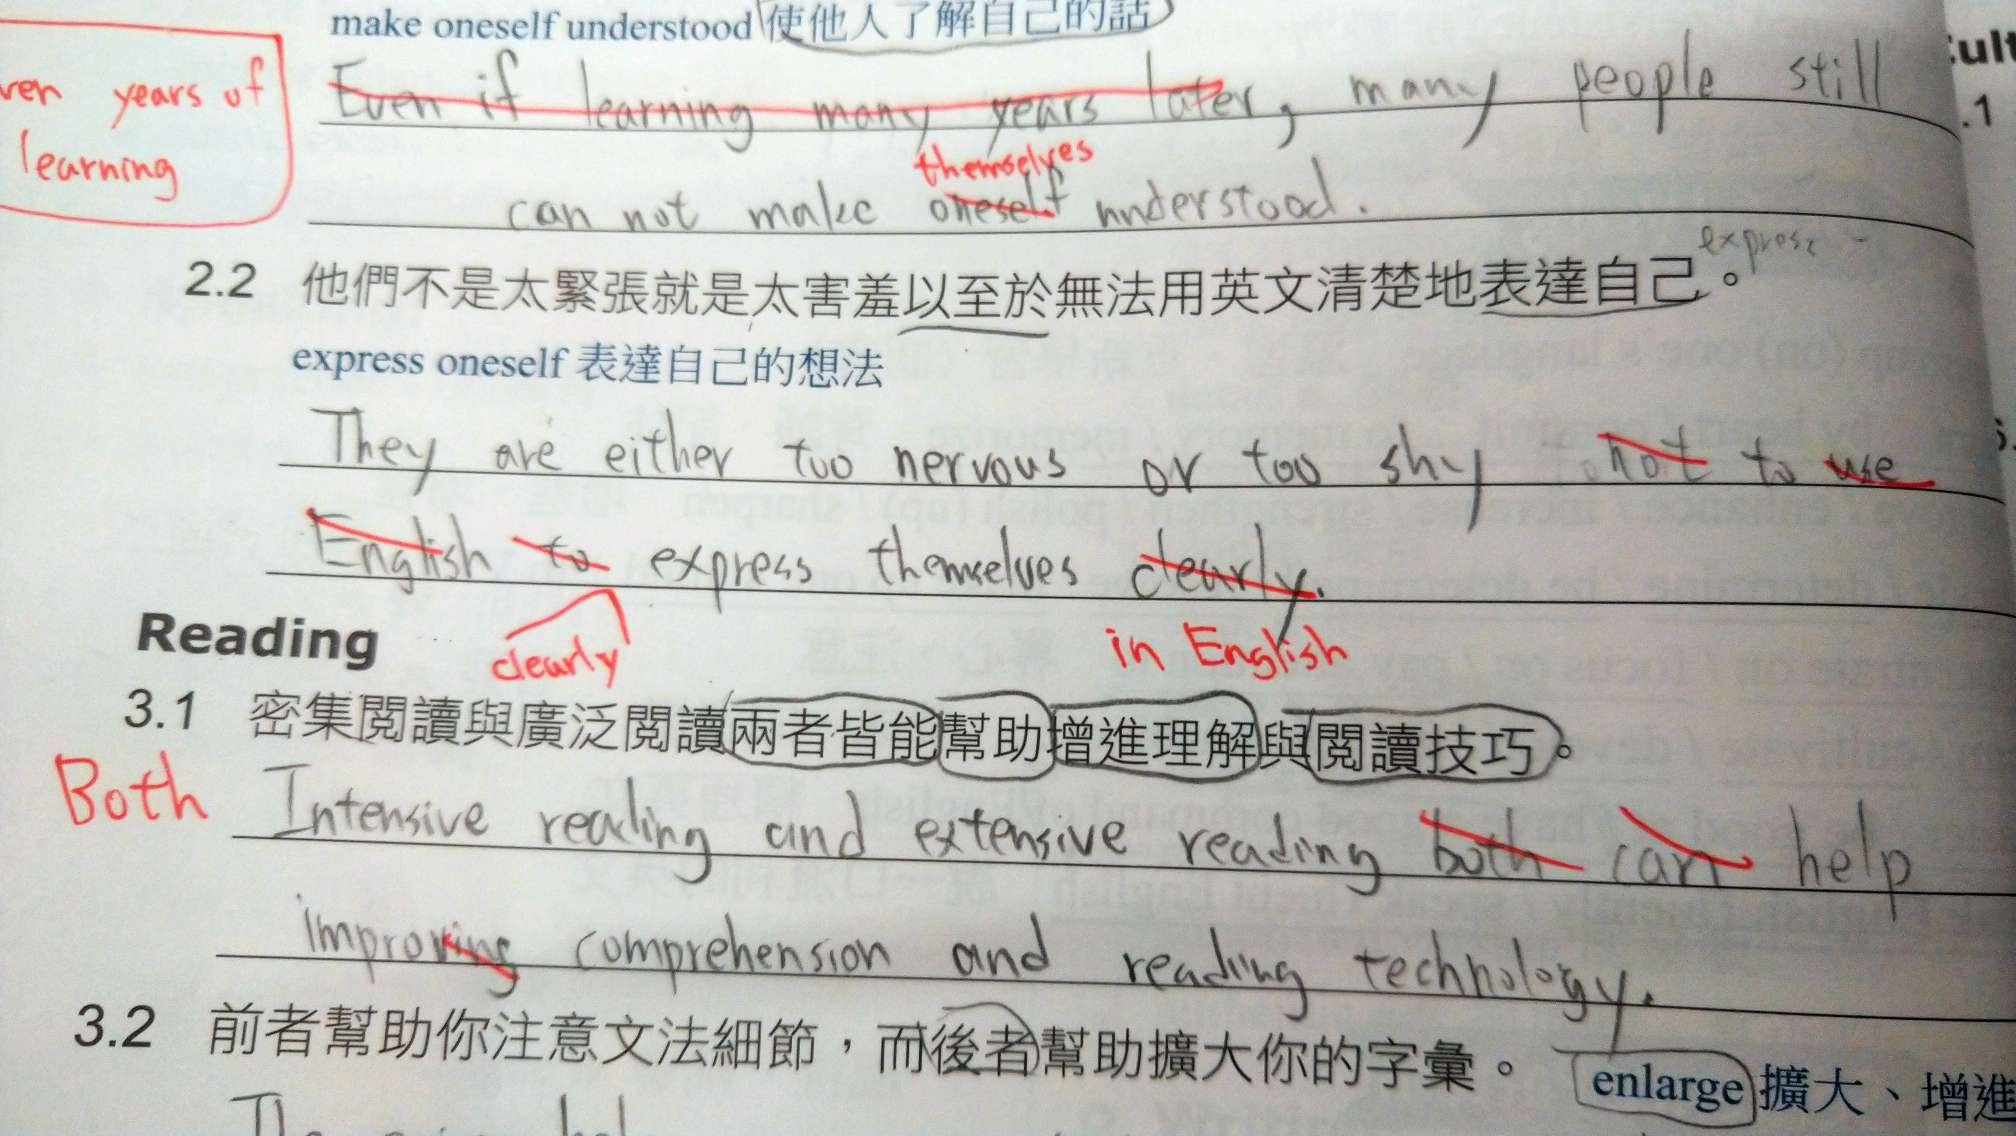 make oneself understood 使他人了解自己的話
years of
learning
Even if learning many years later, many people still
themselves
can not make oneself understood.
2.2 他們不是太緊張就是太害羞以至於無法用英文清楚地表達自己。
express oneself 表達自己的想法
They are either too nervous or too shy not to use
English to express themselves clearly.
clearly
in English
Reading
3.1 密集閱讀與廣泛閱讀兩者皆能幫助增進理解與閱讀技巧。
Both Intensive reading and extensive reading both can help
improving comprehension and reading technology.
3.2 前者幫助你注意文法細節，而後者幫助擴大你的字彙。
enlarge 擴大、增進